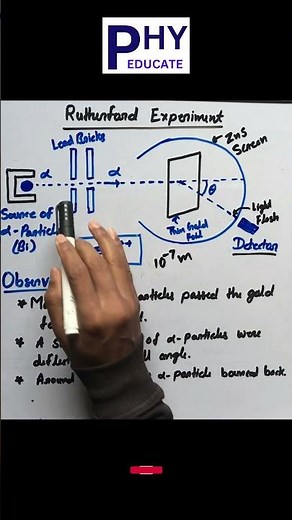 PHY
EDUCATE
Rutherford Experiment
Lead Bricks
ZnS
Screen
α
α
θ
Source of
α-Particle
(Bi)
Thin Gold
Foil
Light
Flash
Detector
10⁻⁷ m
Observ
* M particles passed the gold
* A S of α-particles were
angle.
* Around α-particle bounced back.